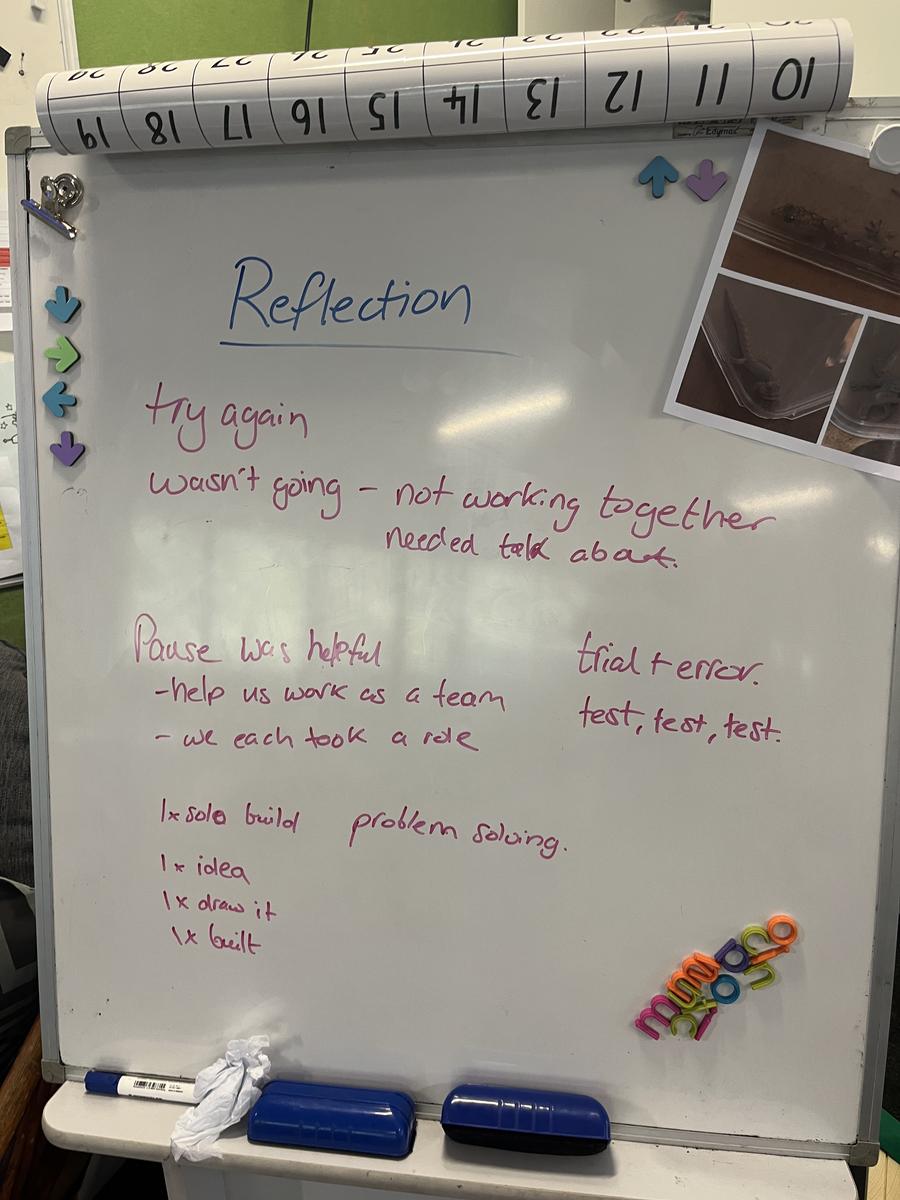 19 18 17 16 15 14 13 12 11 10
Edymax
Reflection
try again
wasn't going - not working together
needed talk about.
Pause was helpful
- help us work as a team
- we each took a role
trial + error.
test, test, test.
1x solo build
problem solving.
1x idea
1x draw it
1x built